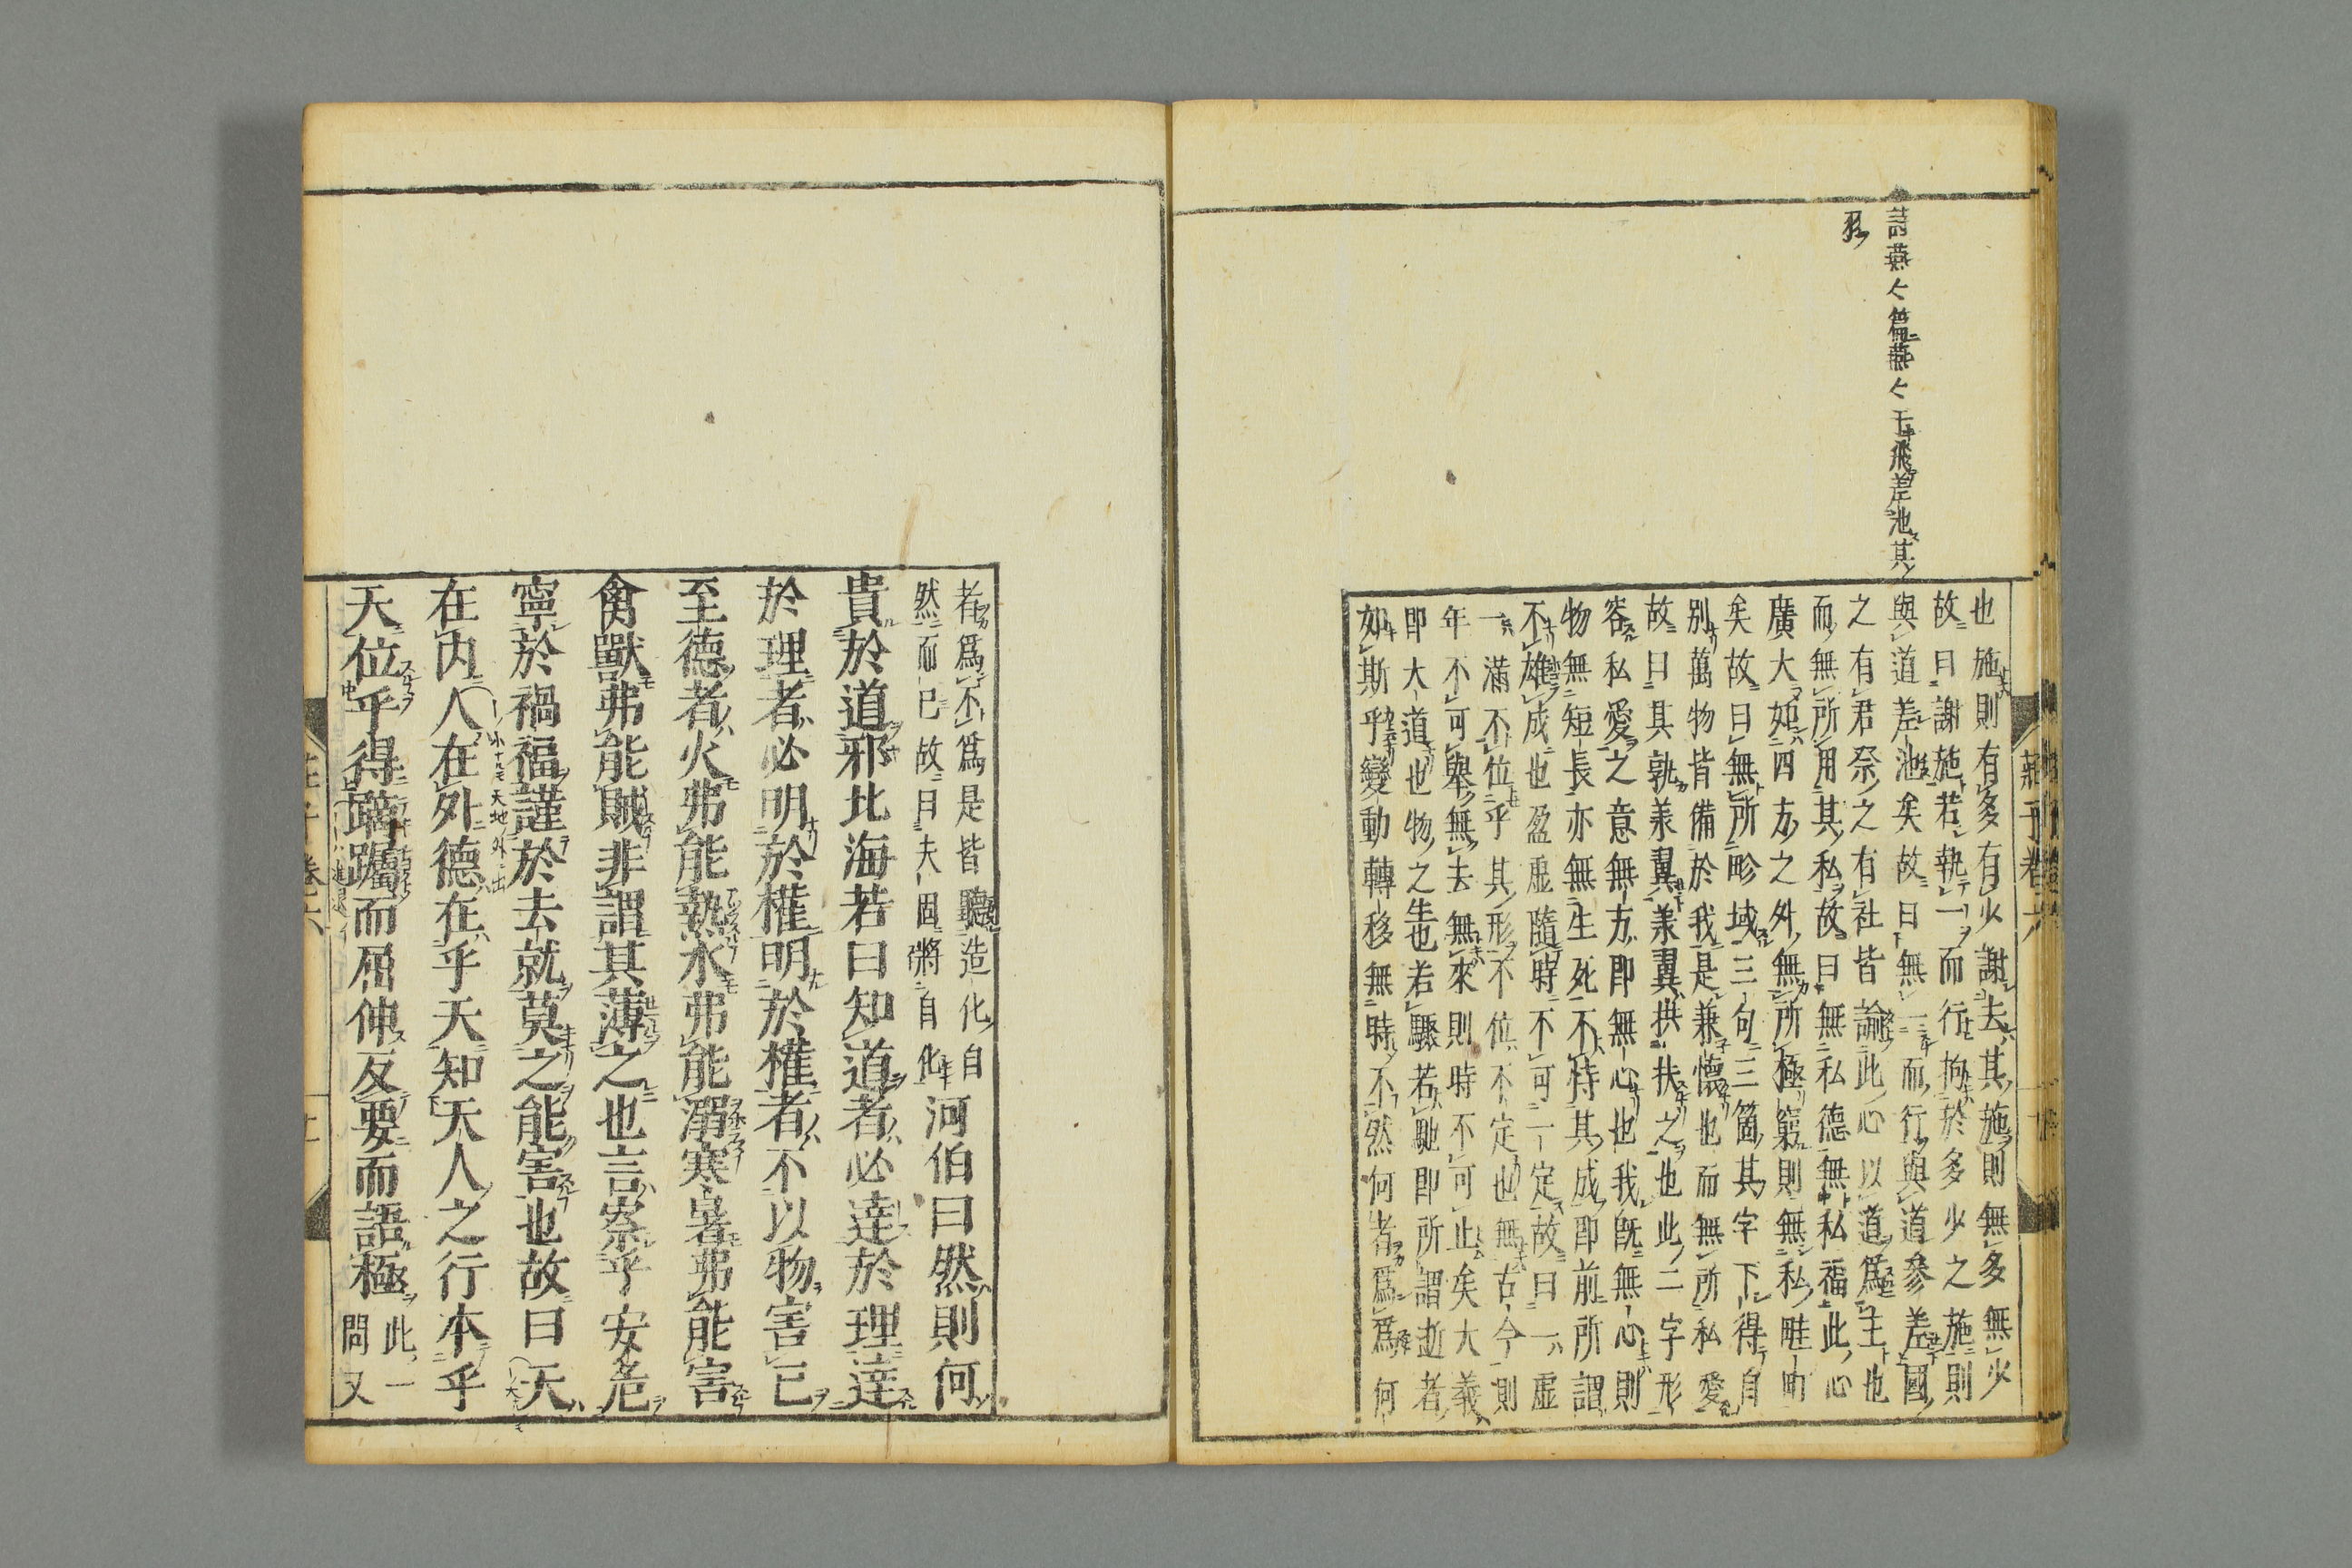 詩燕〻篇燕〻于飛差池其
羽
也施則有多有少謝去其施則無多無少
故曰謝施若執一而行拘於多少之施則
與道差池矣故曰無一而行與道參差國
之有君祭之有社皆論此心以道爲主也
而無所用其私故曰無私德無私福此心
廣大如四方之外無所極窮則無私畦町
矣故曰無所畛域三句三箇其字下得自
別萬物皆備於我是兼懷也而無所私愛
故曰其孰羕翼羕翼拱扶之也此二字形
容私愛之意無方即無心也我既無心則
物無短長亦無生死不待其成即前所謂
不雄成也盈虛隨時不可一定故曰一虛
一滿不位乎其形不位不定也無古今則
年不可舉無去無來則時不可止矣大義
即大道也物之生也若驟若馳即所謂逝者
如斯乎變動轉移無時不然何者爲爲何
莊子卷六
者爲不爲是皆聽造化自
然而已故曰夫固將自化
河伯曰然則何
貴於道邪北海若曰知道者必達於理達
於理者必明於權明於權者不以物害己
至德者火弗能熱水弗能溺寒暑弗能害
禽獸弗能賊非謂其薄之也言察乎安危
寧於禍福謹於去就莫之能害也故曰天
在內人在外德在乎天知天人之行本乎
天位乎得蹢躅而屈伸反要而語極
此一
問又